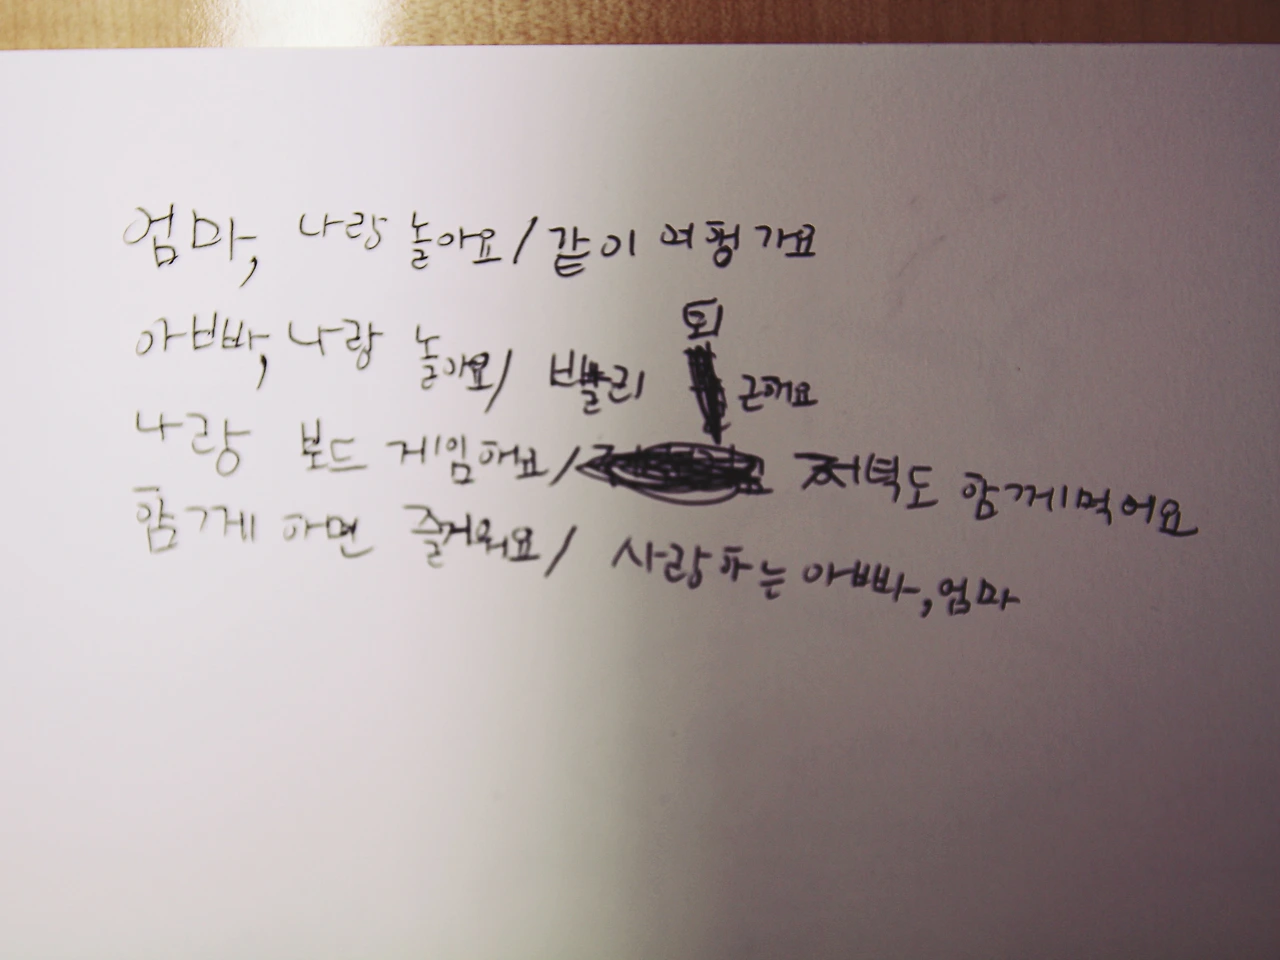 엄마, 나랑 놀아요/같이 여행가요
아빠, 나랑 놀아요/ 빨리 퇴근해요
나랑 보드 게임해요/ 저녁도 함께먹어요
함께 하면 즐거워요/ 사랑하는 아빠,엄마